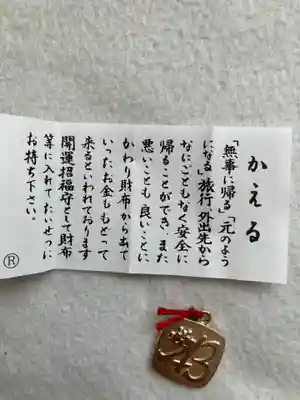 かえる
「無事に帰る」「元のよう
になる」旅行 外出先から
なにごともなく安全に
帰ることができ、また
悪いことも 良いことに
かわり財布から出て
いったお金ももどって
来るといわれております
開運招福守として財布
等に入れてたいせつに
お持ち下さい。
®